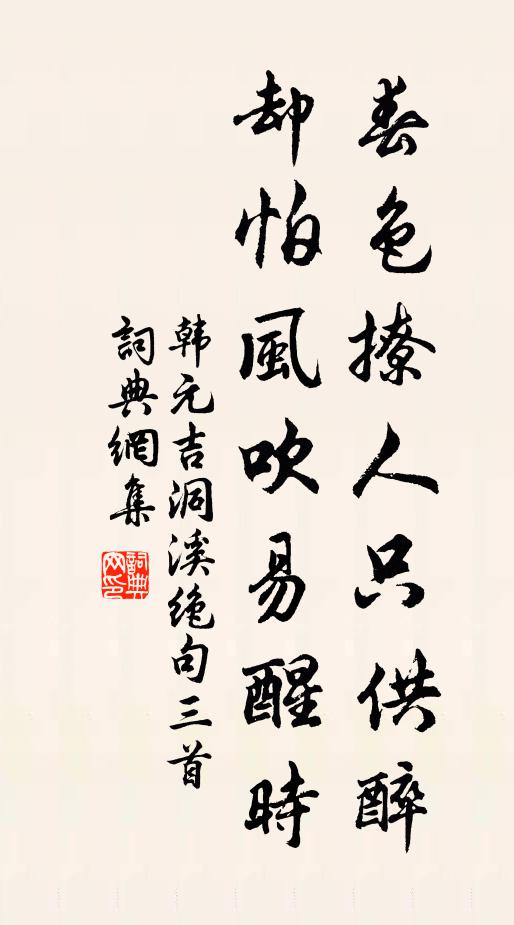 春色撩人只供醉
却怕風吹易醒時
韩元吉洞溪绝句三首
詞典網集
詞典网印